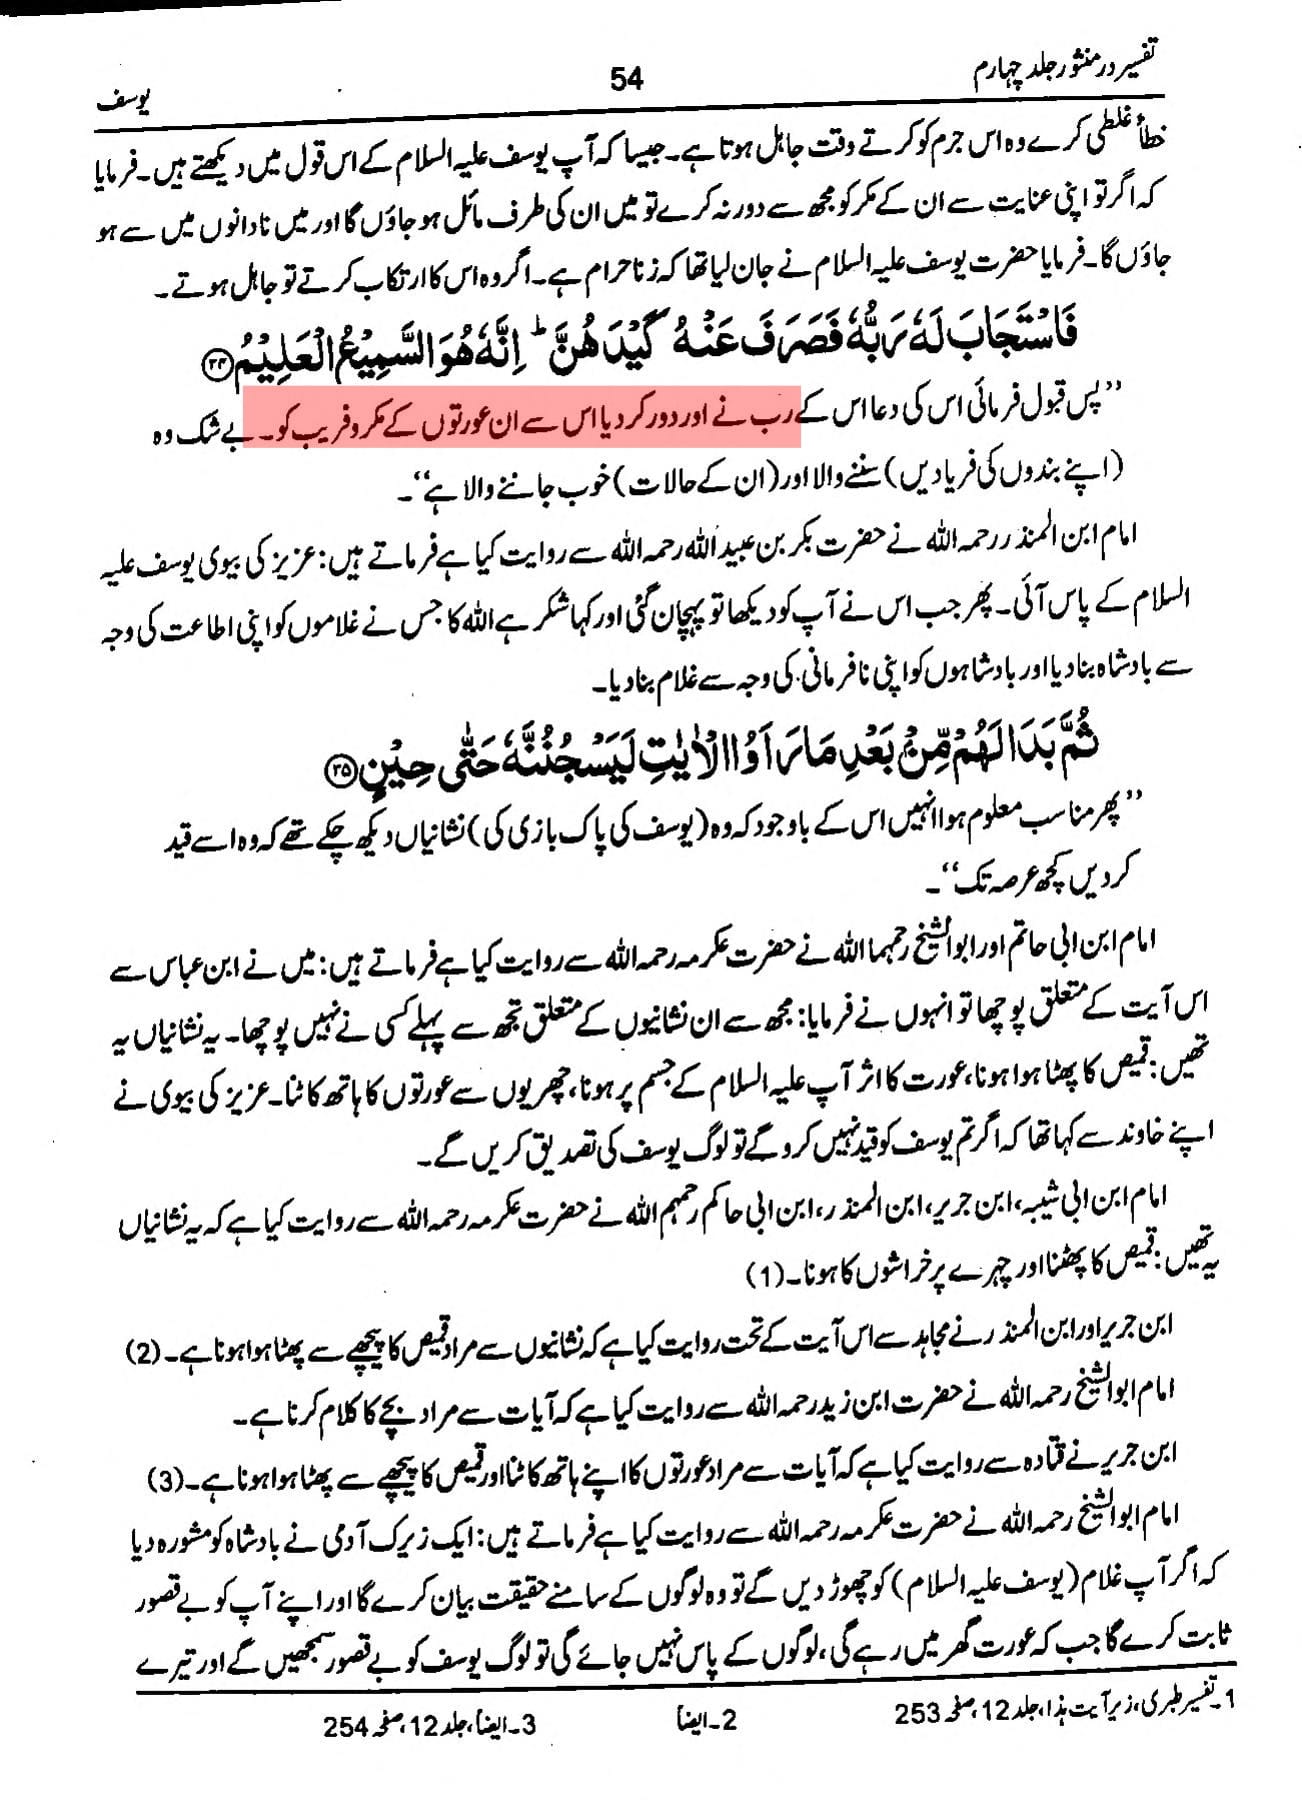 تفسیر درمنثور جلد چہارم
54
یوسف
خطأ غلطی کرے وہ اس جرم کو کرتے وقت جاہل ہوتا ہے۔ جیسا کہ آپ یوسف علیہ السلام کے اس قول میں دیکھتے ہیں۔ فرمایا
کہ اگر تو اپنی عنایت سے ان کے مکر کو مجھ سے دور نہ کرے تو میں ان کی طرف مائل ہو جاؤں گا اور میں نادانوں میں سے ہو
جاؤں گا۔ فرمایا حضرت یوسف علیہ السلام نے جان لیا تھا کہ زنا حرام ہے۔ اگر وہ اس کا ارتکاب کرتے تو جاہل ہوتے۔
فَاسْتَجَابَ لَهٗ رَبُّهٗ فَصَرَفَ عَنْهُ كَيْدَهُنَّ ؕ اِنَّهٗ هُوَ السَّمِيْعُ الْعَلِيْمُ ﴿۳۴﴾
”پس قبول فرمائی اس کی دعا اس کے رب نے اور دور کر دیا اس سے ان عورتوں کے مکر و فریب کو۔ بے شک وہ
(اپنے بندوں کی فریادیں) سننے والا اور (ان کے حالات) خوب جاننے والا ہے“۔
امام ابن المنذر رحمہ اللہ نے حضرت بکر بن عبید اللہ رحمہ اللہ سے روایت کیا ہے فرماتے ہیں: عزیز کی بیوی یوسف علیہ
السلام کے پاس آئی۔ پھر جب اس نے آپ کو دیکھا تو پہچان گئی اور کہا شکر ہے اللہ کا جس نے غلاموں کو اپنی اطاعت کی وجہ
سے بادشاہ بنا دیا اور بادشاہوں کو اپنی نافرمانی کی وجہ سے غلام بنا دیا۔
ثُمَّ بَدَا لَهُمْ مِّنْۢ بَعْدِ مَا رَاَوُا الْاٰيٰتِ لَيَسْجُنُنَّهٗ حَتّٰى حِيْنٍ ﴿۳۵﴾
”پھر مناسب معلوم ہوا انہیں اس کے باوجود کہ وہ (یوسف کی پاک بازی کی) نشانیاں دیکھ چکے تھے کہ وہ اسے قید
کر دیں کچھ عرصہ تک“۔
امام ابن ابی حاتم اور ابوالشیخ رحمہما اللہ نے حضرت عکرمہ رحمہ اللہ سے روایت کیا ہے فرماتے ہیں: میں نے ابن عباس سے
اس آیت کے متعلق پوچھا تو انہوں نے فرمایا: مجھ سے ان نشانیوں کے متعلق تجھ سے پہلے کسی نے نہیں پوچھا۔ یہ نشانیاں یہ
تھیں: قمیص کا پھٹا ہوا ہونا، عورت کا اثر آپ علیہ السلام کے جسم پر ہونا، چھریوں سے عورتوں کا ہاتھ کاٹنا۔ عزیز کی بیوی نے
اپنے خاوند سے کہا تھا کہ اگر تم یوسف کو قید نہیں کرو گے تو لوگ یوسف کی تصدیق کریں گے۔
امام ابن ابی شیبہ، ابن جریر، ابن المنذر، ابن ابی حاکم رحمہم اللہ نے حضرت عکرمہ رحمہ اللہ سے روایت کیا ہے کہ یہ نشانیاں
یہ تھیں: قمیص کا پھٹنا اور چہرے پر خراشوں کا ہونا۔ (1)
ابن جریر اور ابن المنذر نے مجاہد سے اس آیت کے تحت روایت کیا ہے کہ نشانیوں سے مراد قمیص کا پیچھے سے پھٹا ہوا ہونا ہے۔ (2)
امام ابوالشیخ رحمہ اللہ نے حضرت ابن زید رحمہ اللہ سے روایت کیا ہے کہ آیات سے مراد بچے کا کلام کرنا ہے۔
ابن جریر نے قتادہ سے روایت کیا ہے کہ آیات سے مراد عورتوں کا اپنے ہاتھ کاٹنا اور قمیص کا پیچھے سے پھٹا ہوا ہونا ہے۔ (3)
امام ابوالشیخ رحمہ اللہ نے حضرت عکرمہ رحمہ اللہ سے روایت کیا ہے فرماتے ہیں: ایک زیرک آدمی نے بادشاہ کو مشورہ دیا
کہ اگر آپ غلام (یوسف علیہ السلام) کو چھوڑ دیں گے تو وہ لوگوں کے سامنے حقیقت بیان کرے گا اور اپنے آپ کو بے قصور
ثابت کرے گا جب کہ عورت گھر میں رہے گی، لوگوں کے پاس نہیں جائے گی تو لوگ یوسف کو بے قصور سمجھیں گے اور تیرے
1۔ تفسیر طبری، زیر آیت ہذا، جلد 12، صفحہ 253
2۔ ایضاً
3۔ ایضاً، جلد 12، صفحہ 254